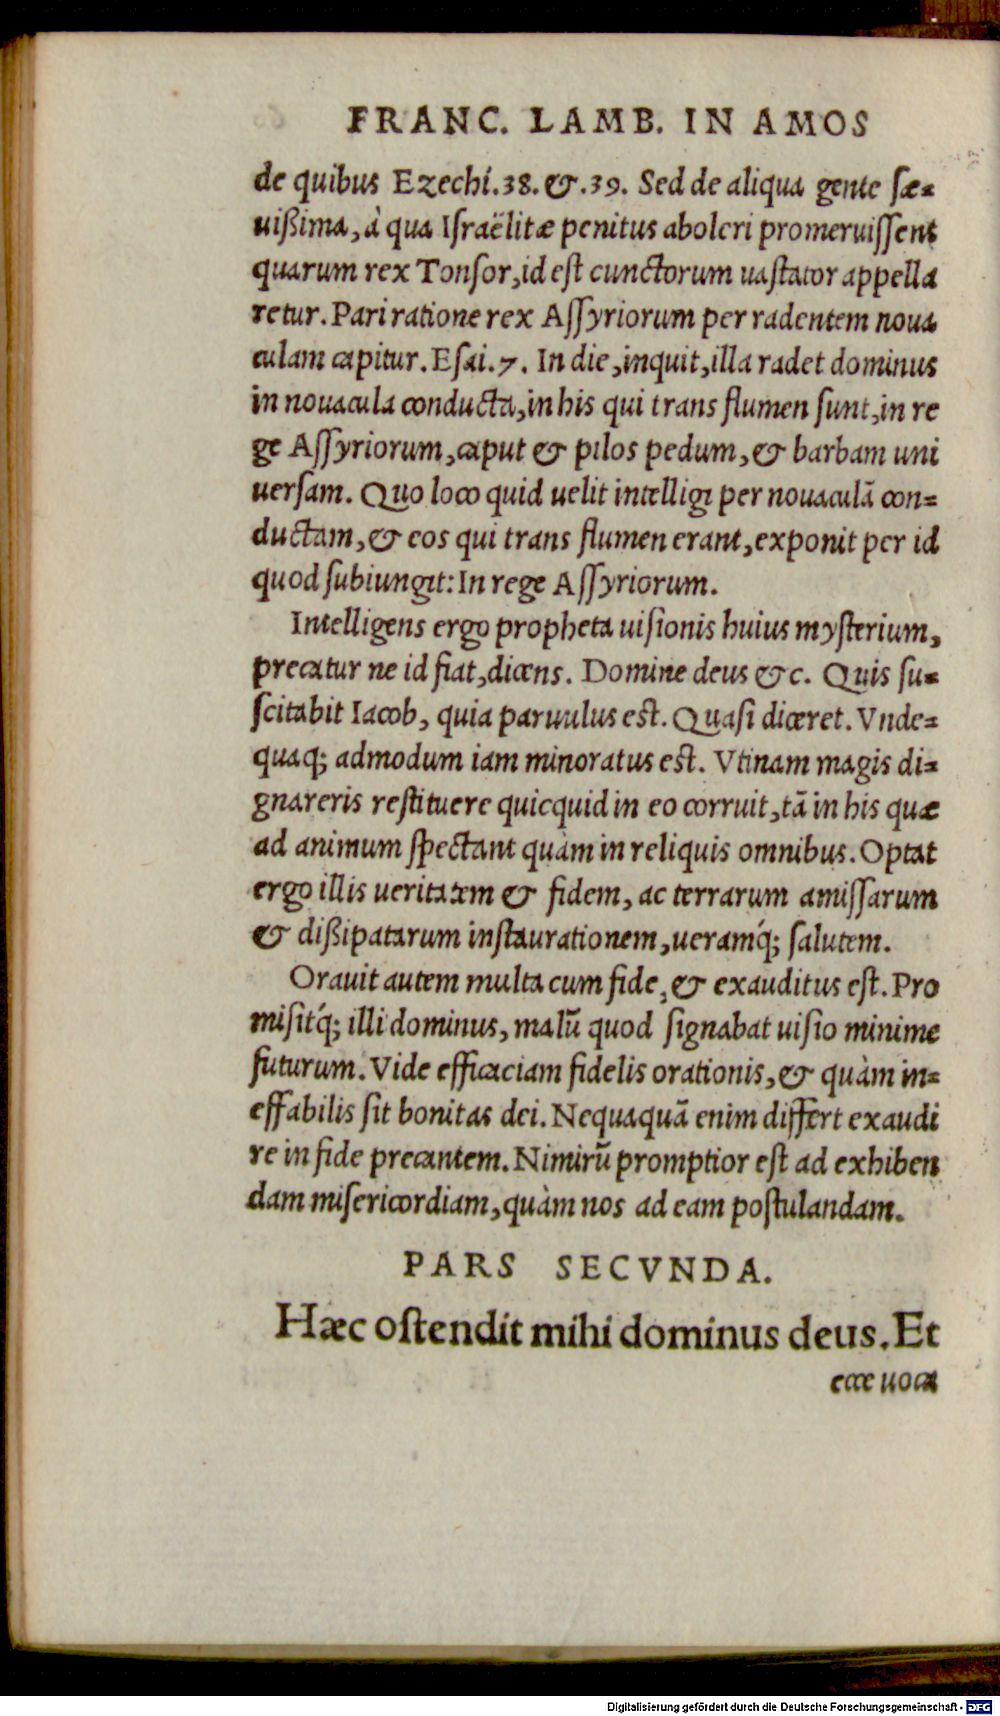 FRANC. LAMB. IN AMOS
de quibus Ezechi.38.&.39. Sed de aliqua gente sæ-
uißima, à qua Israëlitæ penitus aboleri promeruissent
quarum rex Tonsor, id est cunctorum uastator appella
retur. Pari ratione rex Assyriorum per radentem noua
culam capitur. Esai.7. In die, inquit, illa radet dominus
in nouacula conducta, in his qui trans flumen sunt, in re
ge Assyriorum, caput & pilos pedum, & barbam uni
uersam. Quo loco quid uelit intelligi per nouaculã con-
ductam, & eos qui trans flumen erant, exponit per id
quod subiungit: In rege Assyriorum.
Intelligens ergo propheta uisionis huius mysterium,
precatur ne id fiat, dicens. Domine deus &c. Quis su-
scitabit Iacob, quia paruulus est. Quasi diceret. Vnde-
quaq; admodum iam minoratus est. Vtinam magis di-
gnareris restituere quicquid in eo corruit, tã in his quæ
ad animum spectant quàm in reliquis omnibus. Optat
ergo illis ueritatem & fidem, ac terrarum amissarum
& dißipatarum instaurationem, ueramq́; salutem.
Orauit autem multa cum fide, & exauditus est. Pro
misitq́; illi dominus, malũ quod signabat uisio minime
futurum. Vide efficaciam fidelis orationis, & quàm in-
effabilis sit bonitas dei. Nequaquã enim differt exaudi
re in fide precantem. Nimirũ promptior est ad exhiben
dam misericordiam, quàm nos ad eam postulandam.
PARS SECVNDA.
Hæc ostendit mihi dominus deus. Et
ecce uoca
Digitalisierung gefördert durch die Deutsche Forschungsgemeinschaft - DFG